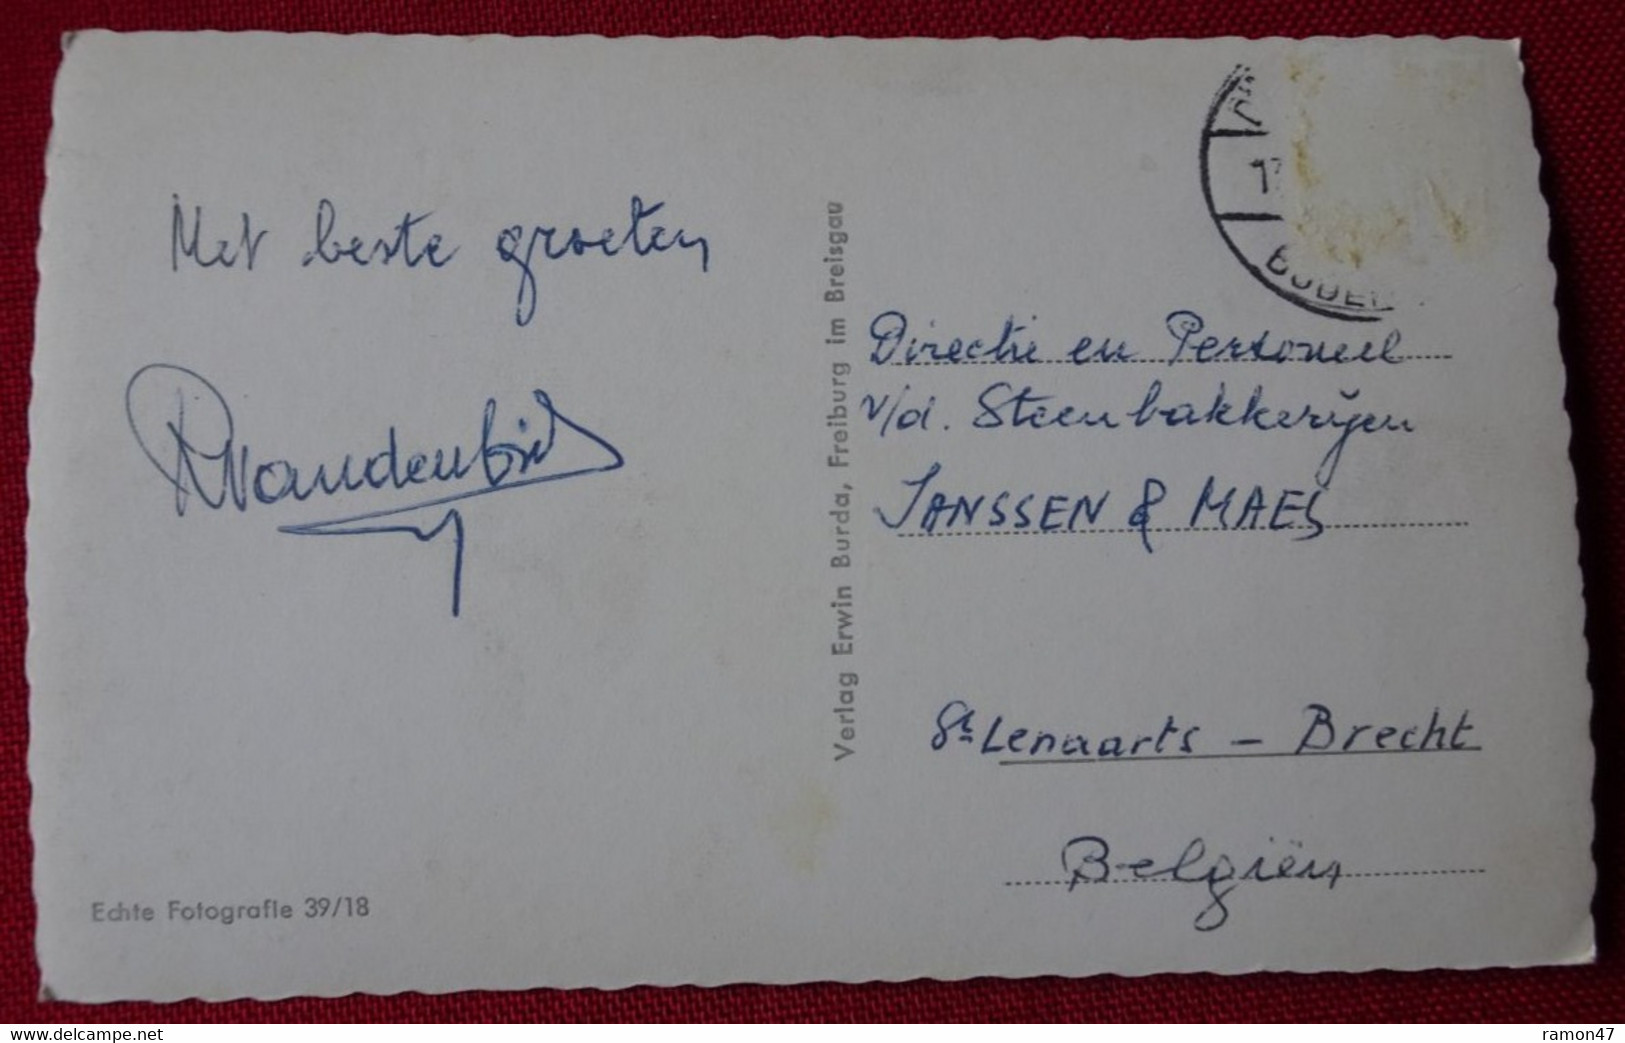 Met beste groeten
Directie en Personeel
v/d. Steenbakkerijen
JANSSEN & MAES
St Lenaarts - Brecht
Belgiën
Verlag Erwin Burda, Freiburg im Breisgau
Echte Fotografie 39/18
www.delcampe.net
ramon47